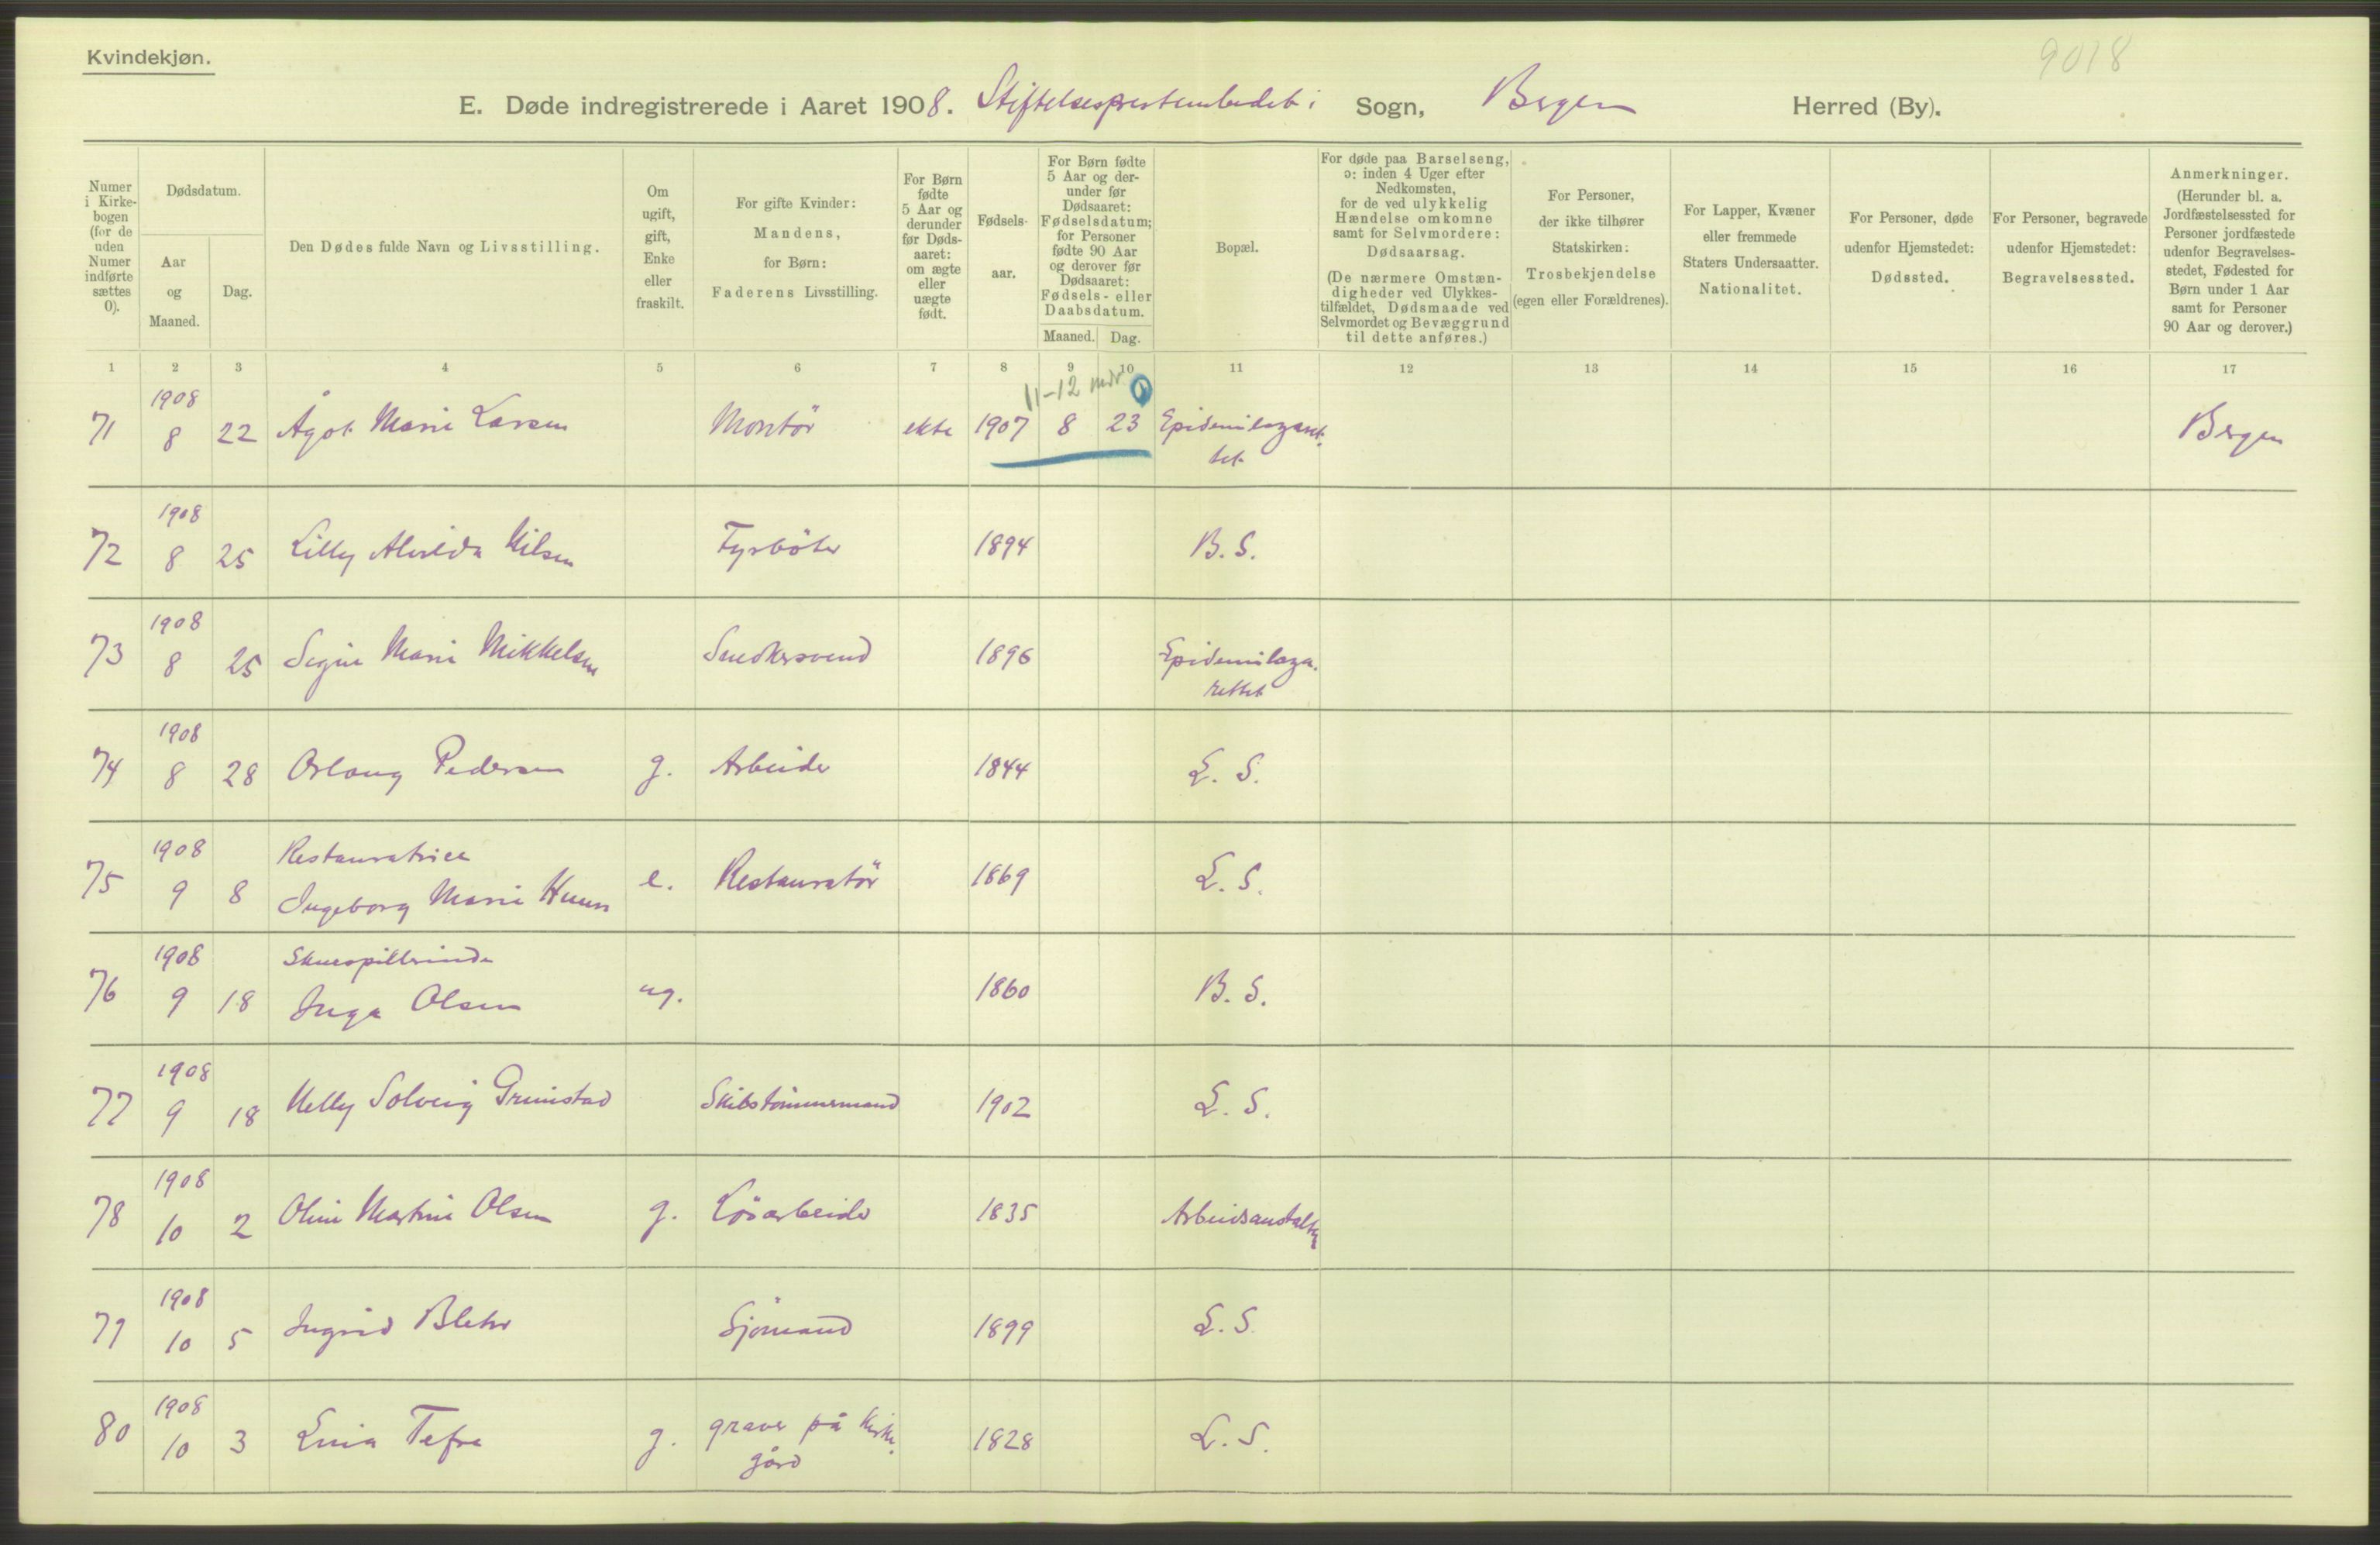 Kvindekjøn.
9018
E. Døde indregistrerede i Aaret 1908. Stiftelsesprestembedet i Sogn, Bergen Herred (By).
Numer i Kirkebogen (for de uden Numer indførte sættes 0).
Dødsdatum.
Aar og Maaned.
Dag.
Den Dødes fulde Navn og Livsstilling.
Om ugift, gift, Enke eller fraskilt.
For gifte Kvinder: Mandens, for Børn: Faderens Livsstilling.
For Børn fødte 5 Aar og derunder før Dødsaaret: om ægte eller uægte født.
Fødselsaar.
For Børn fødte 5 Aar og derunder før Dødsaaret: Fødselsdatum; for Personer fødte 90 Aar og derover før Dødsaaret: Fødsels- eller Daabsdatum.
Maaned. Dag.
Bopæl.
For døde paa Barselseng, ɔ: inden 4 Uger efter Nedkomsten, for de ved ulykkelig Hændelse omkomne samt for Selvmordere: Dødsaarsag.
(De nærmere Omstændigheder ved Ulykkestilfældet, Dødsmaade ved Selvmordet og Bevæggrund til dette anføres.)
For Personer, der ikke tilhører Statskirken: Trosbekjendelse (egen eller Forældrenes).
For Lapper, Kvæner eller fremmede Staters Undersaatter. Nationalitet.
For Personer, døde udenfor Hjemstedet: Dødssted.
For Personer, begravede udenfor Hjemstedet: Begravelsessted.
Anmerkninger.
(Herunder bl. a. Jordfæstelsessted for Personer jordfæstede udenfor Begravelsesstedet, Fødested for Børn under 1 Aar samt for Personer 90 Aar og derover.)
1 2 3 4 5 6 7 8 9 10 11 12 13 14 15 16 17
11-12 mdr
1908
71 8 22 Ågot Marie Larsen Montör ekte 1907 8 23 Epidemilazaret- Bergen
tet
1908
72 8 25 Lilly Alvilda Nilsen Fyrböter 1894 B. S.
1908
73 8 25 Signe Marie Mikkelsen Snedkersvend 1896 Epidemilaza-
rettet
1908
74 8 28 Oslaug Pedersen g. Arbeider 1844 L. S.
1908 Restauratrice
75 9 8 Ingeborg Marie e. Restauratör 1869 L. S.
1908 Skuespillerinde
76 9 18 Inga Olsen ug. 1860 B. S.
1908
77 9 18 Nelly Solveig Grimstad Skibstömmermand 1902 L. S.
1908
78 10 2 Oline Martine Olsen g. Lösarbeider 1835 Arbeidsanstalten
1908
79 10 5 Ingrid Sjömand 1899 L. S.
1908
80 10 3 g. graver på Kirke- 1828 L. S.
gård